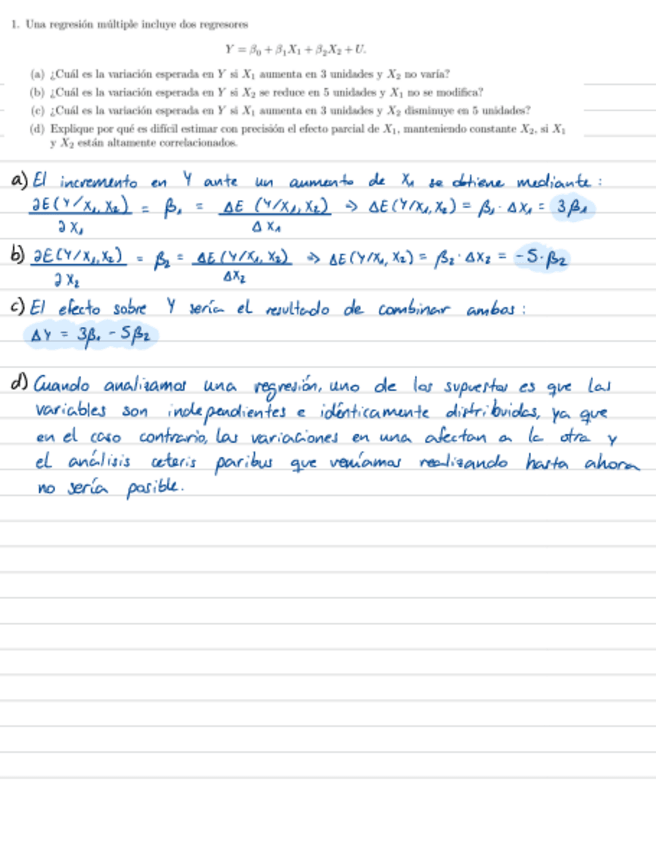 1. Una regresión múltiple incluye dos regresores
Y = β₀ + β₁X₁ + β₂X₂ + U.
(a) ¿Cuál es la variación esperada en Y si X₁ aumenta en 3 unidades y X₂ no varía?
(b) ¿Cuál es la variación esperada en Y si X₂ se reduce en 5 unidades y X₁ no se modifica?
(c) ¿Cuál es la variación esperada en Y si X₁ aumenta en 3 unidades y X₂ disminuye en 5 unidades?
(d) Explique por qué es difícil estimar con precisión el efecto parcial de X₁, manteniendo constante X₂, si X₁
y X₂ están altamente correlacionados.
a) El incremento en Y ante un aumento de X₁ se obtiene mediante:
∂E(Y/X₁,X₂)/∂X₁ = β₁ = ΔE(Y/X₁,X₂)/ΔX₁ ⇒ ΔE(Y/X₁,X₂) = β₁·ΔX₁ = 3β₁
b) ∂E(Y/X₁,X₂)/∂X₂ = β₂ = ΔE(Y/X₁,X₂)/ΔX₂ ⇒ ΔE(Y/X₁,X₂) = β₂·ΔX₂ = -5·β₂
c) El efecto sobre Y sería el resultado de combinar ambos:
ΔY = 3β₁ - 5β₂
d) Cuando analizamos una regresión, uno de los supuestos es que las
variables son independientes e idénticamente distribuidas, ya que
en el caso contrario, las variaciones en una afectan a la otra y
el análisis ceteris paribus que veníamos realizando hasta ahora
no sería posible.